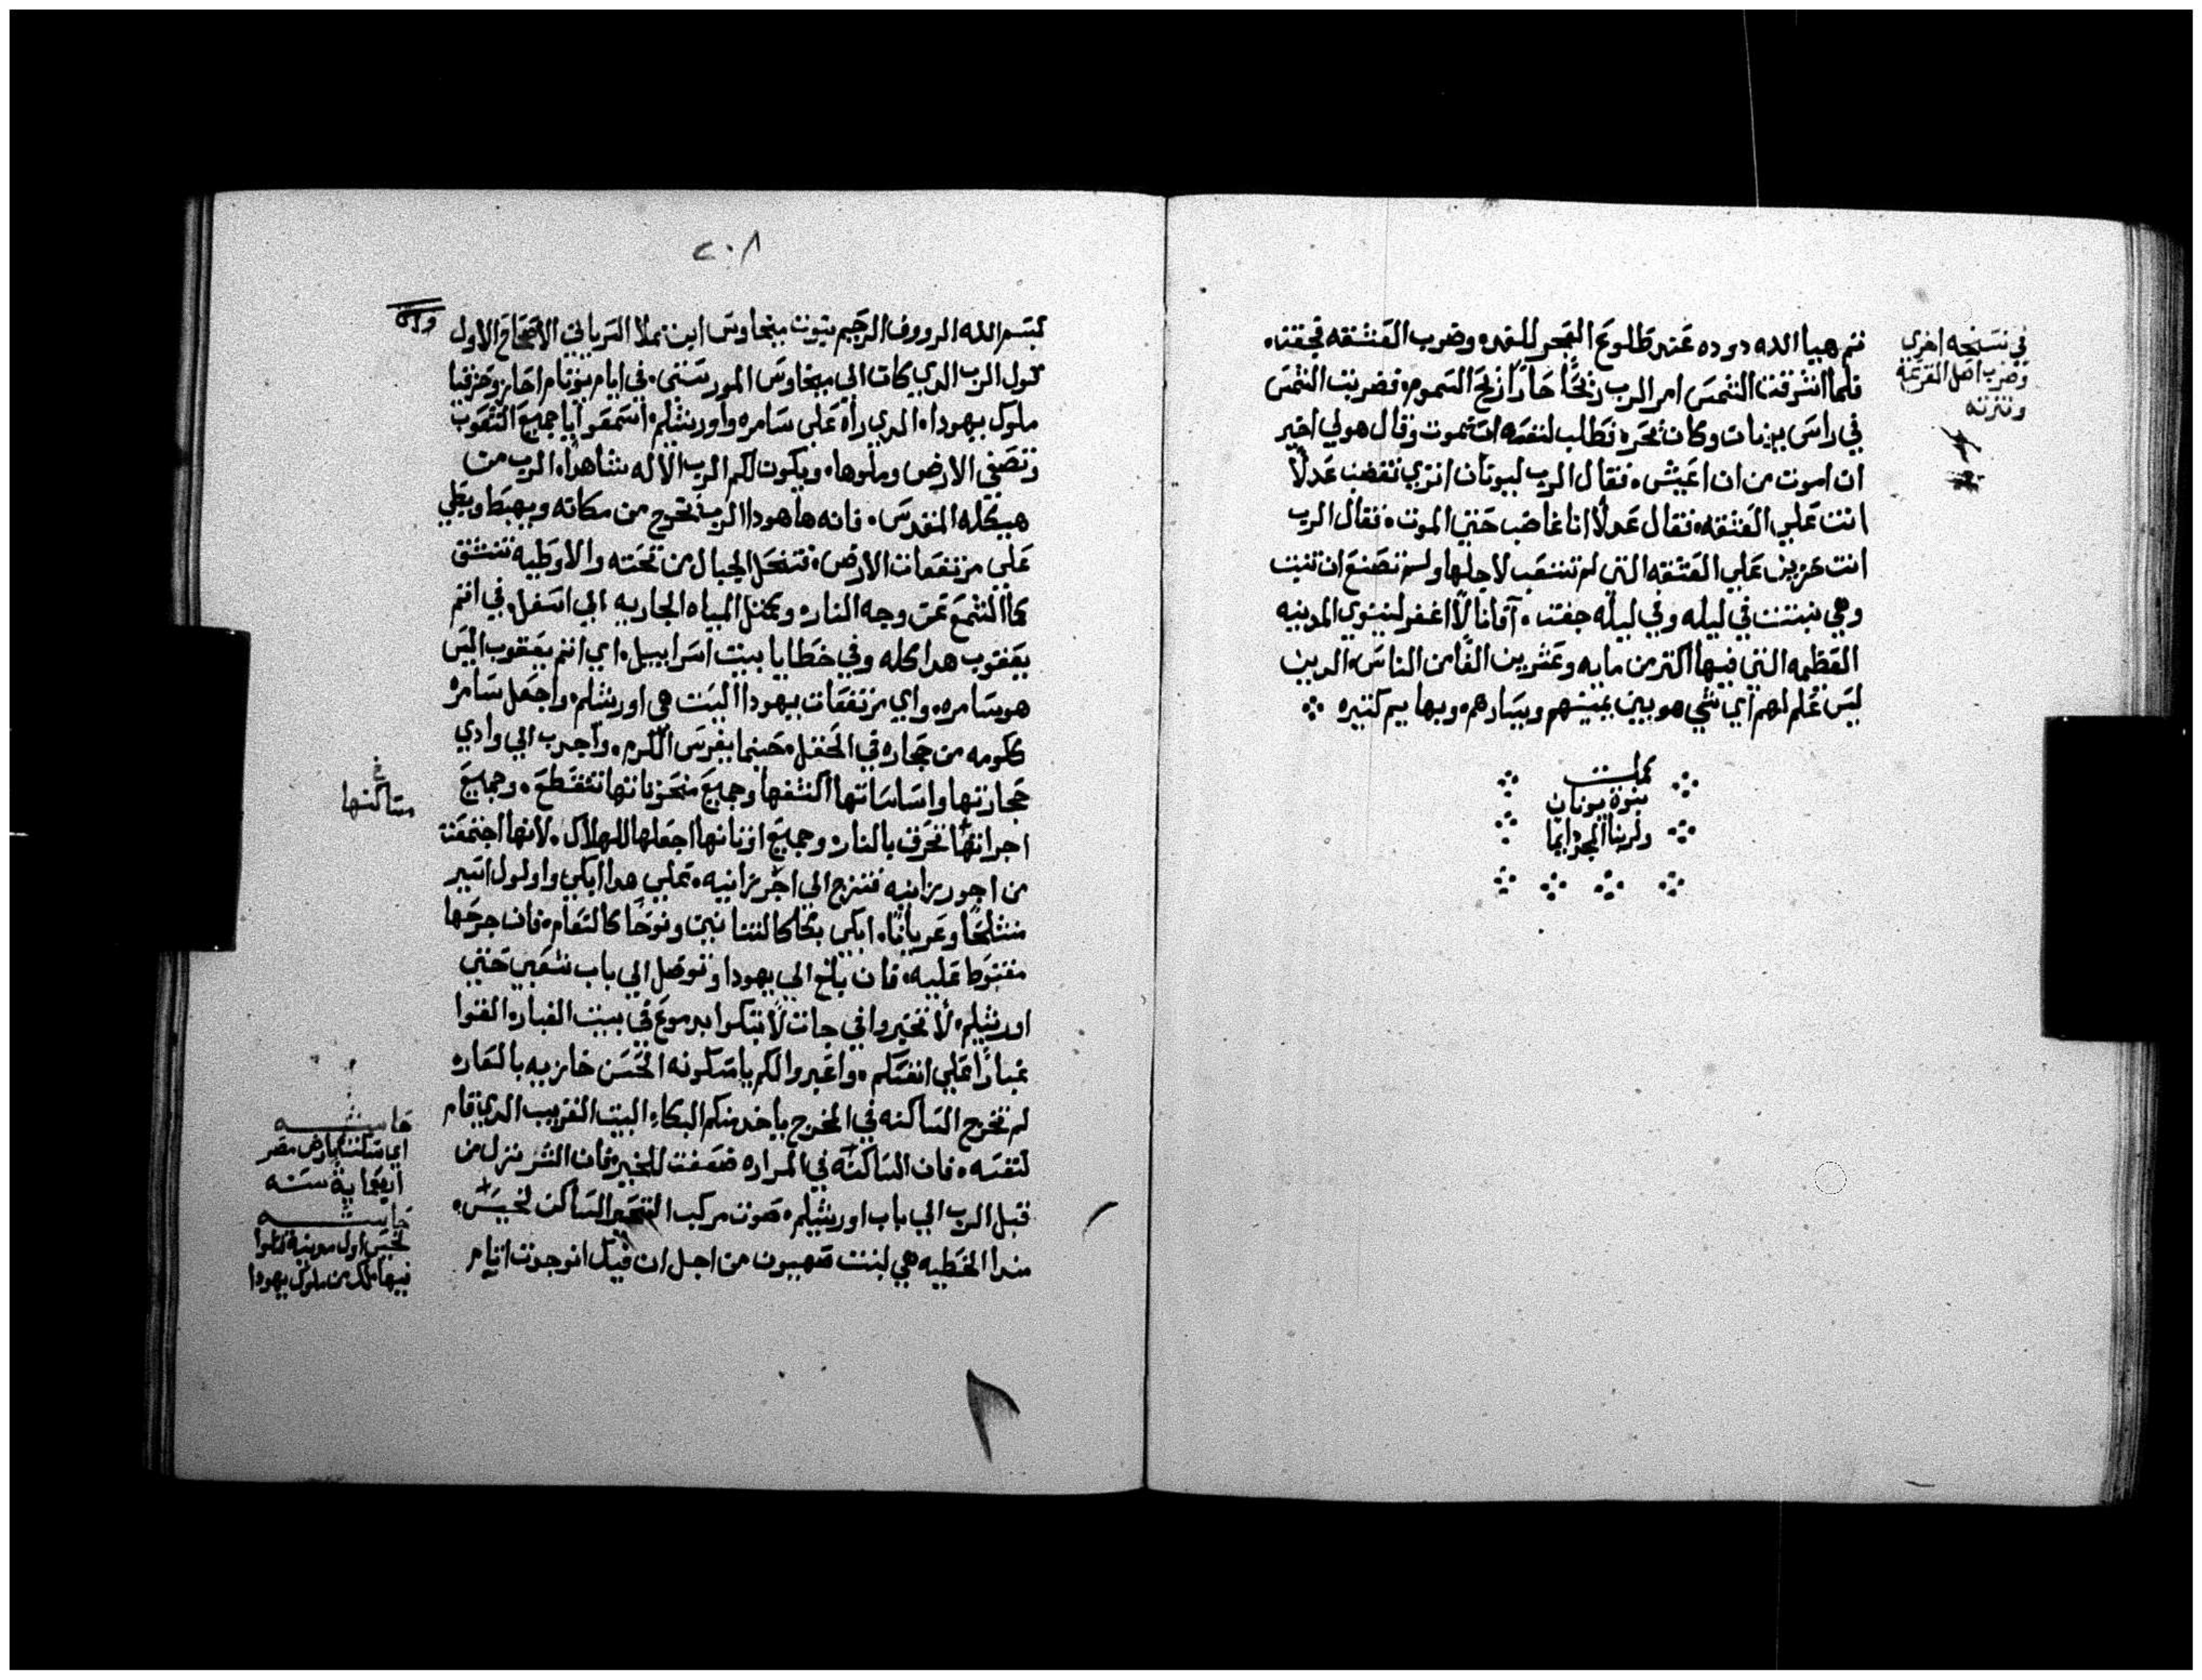 ثم هيا الله دوده عند طلوع الفجر للغد وضرب العشقه فجفت
فلما اشرقت الشمس امر الرب ريحًا حارًا ريح السموم فضربت الشمس
في راس يونان وكان ضجره فطلب لنفسه ان تموت وقال هو لي اخير
ان اموت من ان اعيش فقال الرب ليونان اتري تغضب عدلًا
انت علي العشقه فقال عدلًا انا غاضب حتي الموت فقال الرب
انت حزين علي العشقه التي لم تتعب لاجلها ولم تصنع ان تنبت
وهي نبتت في ليله وفي ليله جفت افانا لا اغفر لنينوي المدينه
العظمه التي فيها اكتر من مايه وعشرين الفًا من الناس الدين
ليس عُلم لهم اي شي هو بين يمينهم ويسارهم وبهايم كتيره
كملت
نبوة يونان
ولربنا المجد ايما
في نسخه اخري
وضرب اصل القرعه
وقرته
٢٠٨
بسم الله الرووف الرحيم نبوت ميخاوس ابن نملا السرياني الاصحاح الاول
قول الرب الدي كان الي ميخاوس المورستتي في ايام يوتام احاز وحزقيا
ملوك يهودا الدي راه علي سامره واورشليم اسمعوا ايا جميع الشعوب
وتصغي الارض وملوها ويكون لكم الرب الاله شاهدًا الرب من
هيكله المقدس فانه ها هودا الرب يخرج من مكانه ويهبط ويطي
علي مرتفعات الارض فتنحل الجبال من تحته والاوطيه تنشق
كالشمع عن وجه النار ويمثل المياه الجاريه الي اسفل في اتم
يعقوب هدا كله وفي خطايا بيت اسراييل اي اتم يعقوب اليس
هو سامره واي مرتفعات يهودا اليست هي اورشلم واجعل سامره
ككومه من حجاره في الحقل حينما يغرس الكرم واجدب الي وادي
حجارتها واساساتها اكشفها وجميع منحوتاتها تنقطع وجميع
اجراتها تحرق بالنار وجميع اوتانها اجعلها للهلاك لانها اجتمعت
من اجور زانيه فترجع الي اجر زانيه علي هدا ابكي واولول اسير
متشلحًا وعريانًا ابكي بكا كالتنانين ونوحًا كالنعام فان جرحها
مقنوط عليه فان بلغ الي يهودا وتوصل الي باب شعبي حتي
اورشليم لا تخبروا في جات لا تبكوا بدموع في بيت الغبار القوا
غبارًا علي انفسكم واعبروا لكم يا مسكونه الحسن خازيه بالعار
لم تخرج الساكنه في المخرج ياخد منكم البكاء البيت القريب الدي قام
لنفسه فان الساكنه في المراره ضعفت للخير فان الشر نزل من
قبل الرب الي باب اورشليم صوت مركب الساكن لخيس
مندا الخطيه هي لبنت صهيون من اجل ان فيك انوجدت اتام
مساكنها
حاشيه
اي سكنت بارض مصر
اربعماية سنه
حاشيه
لخيس اول مدينة قتلوا
فيها ملك من ملوك يهودا